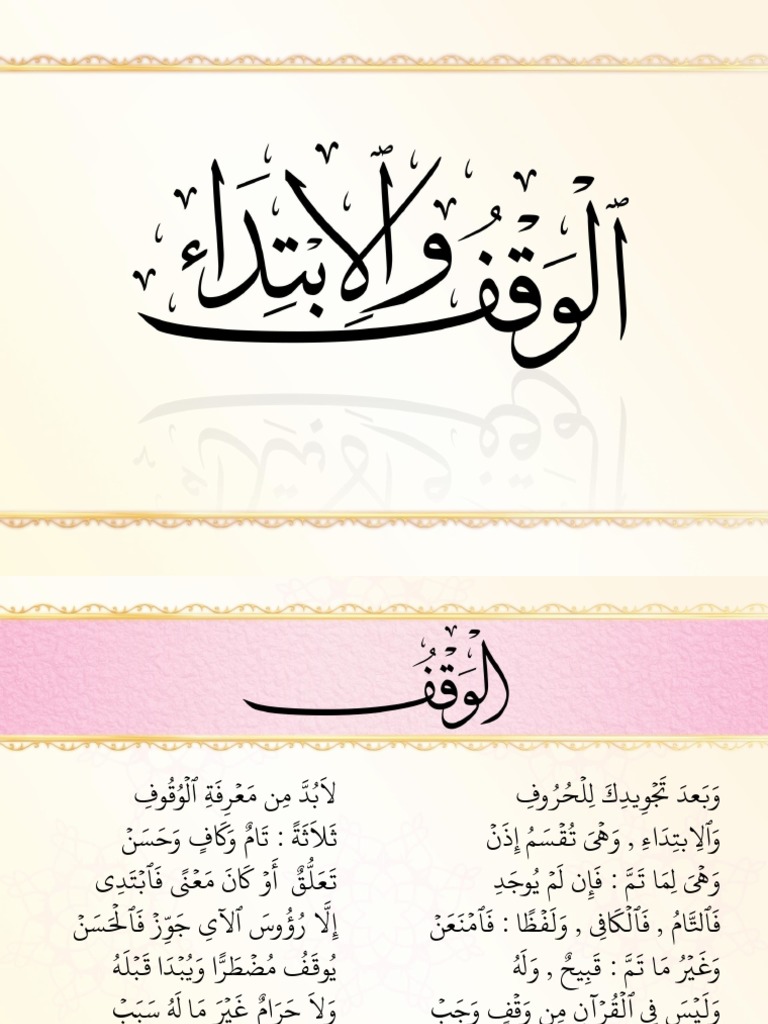 ٱلْوَقْفُ وَٱلِابْتِدَاء
الْوَقْفُ
وَبَعدَ تَجْوِيدِكَ لِلْحُرُوفِ لاَبُدَّ مِن مَعْرِفَةِ ٱلْوُقُوفِ
وَٱلِابتِدَاءِ , وَهْىَ تُقْسَمُ إِذَنْ ثَلاَثَةً : تَامٌ وَكَافٍ وَحَسَنْ
وَهْىَ لِمَا تَمَّ : فَإِن لَمْ يُوجَدِ تَعَلُّقٌ أَوْ كَانَ مَعْنًى فَٱبْتَدِى
فَالتَّامُ , فَٱلْكَافِى , وَلَفْظًا : فَٱمْنَعَنْ إِلَّا رُؤُوسَ ٱلآيِ جَوِّزْ فَٱلْحَسَنْ
وَغَيْرُ مَا تَمَّ : قَبِيحٌ , وَلَهُ يُوقَفُ مُضْطَرًّا وَيُبْدَا قَبْلَهُ
وَلَيْسَ فِي ٱلْقُرْآنِ مِن وَقْفٍ وَجَبْ وَلاَ حَرَامٌ غَيْرَ مَا لَهُ سَبَبْ